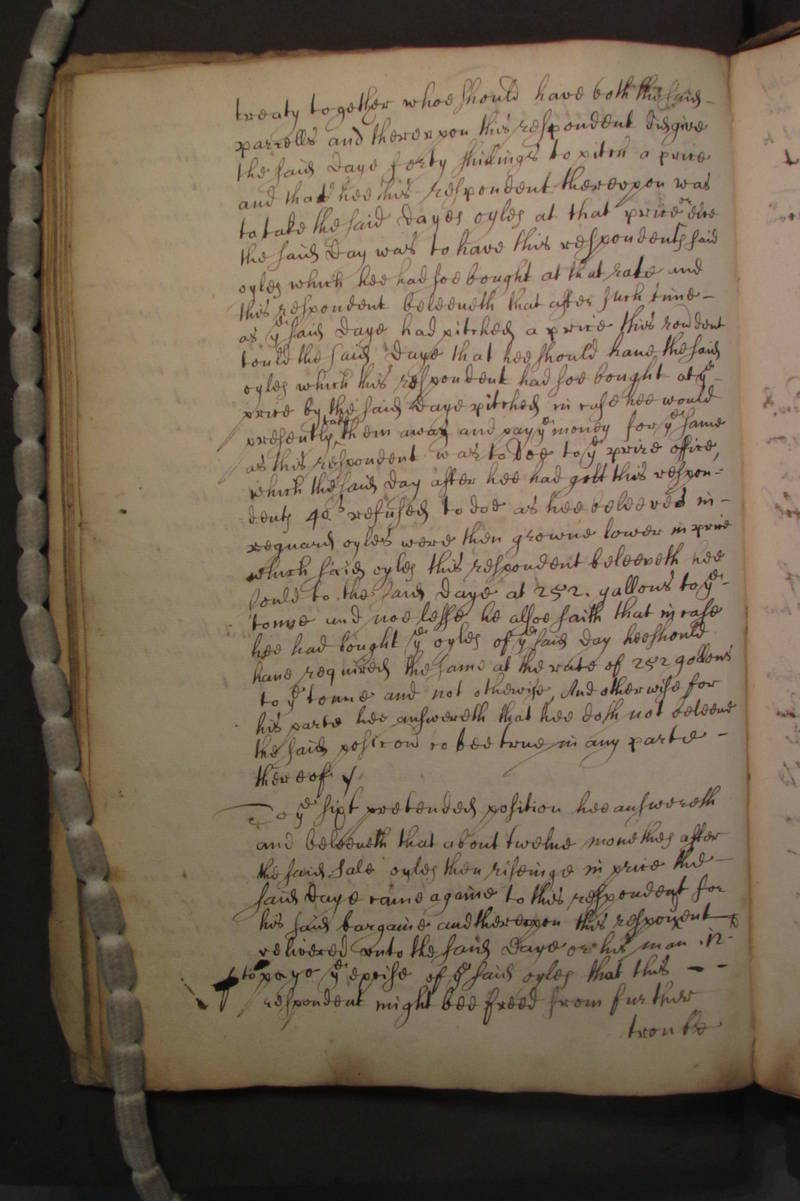 treaty together whoe should have both the said -
parcells and thereupon this respondent did give
the said Daye forty shillings to pitch a price
and that hee this respondent thereupon was
to take the said Dayes oyles at that price or else
the said Day was to have this respondents said
oyles which hee had soe bought at that rate and
this respondent beleeveth that after such time -
as ye said Daye had pitched a price this rondent
tould the said Daye that hee should have the said
oyles which this respondent had soe bought at ye -
price by the said Daye pitched in case hee would
presently take them away and pay ye money for ye same
as this respondent was to doe to ye prize office,
which the said Day after hee had gott this respon=
dents 40s refused to doe as hee beleeves in -
reguard oyles were then growne lower in price
which said oyles this respondent beleeveth hee
sould to the said Daye at 252. gallons to ye -
tonne and noe lesse he alsoe saith that in case
hee had bought ye oyles of ye said Day hee should
have required the same at the rate of 252 gallons
to ye tonne and not othewise, And otherwise for
his parte hee answereth that hee doth not beleeve
the said position to bee true in any parte -
thereof
To ye sixt pretended position hee answereth
and beleeveth that about twelve monethes after
the said sale oyles then riseinge in price the -
said Daye came againe to this respondent for
his said bargaine and thereupon this respondent
delivered unto the said Daye or his man .12-
to paye ye excise of ye said oyles that this - -
respondent might bee freed from further
trouble